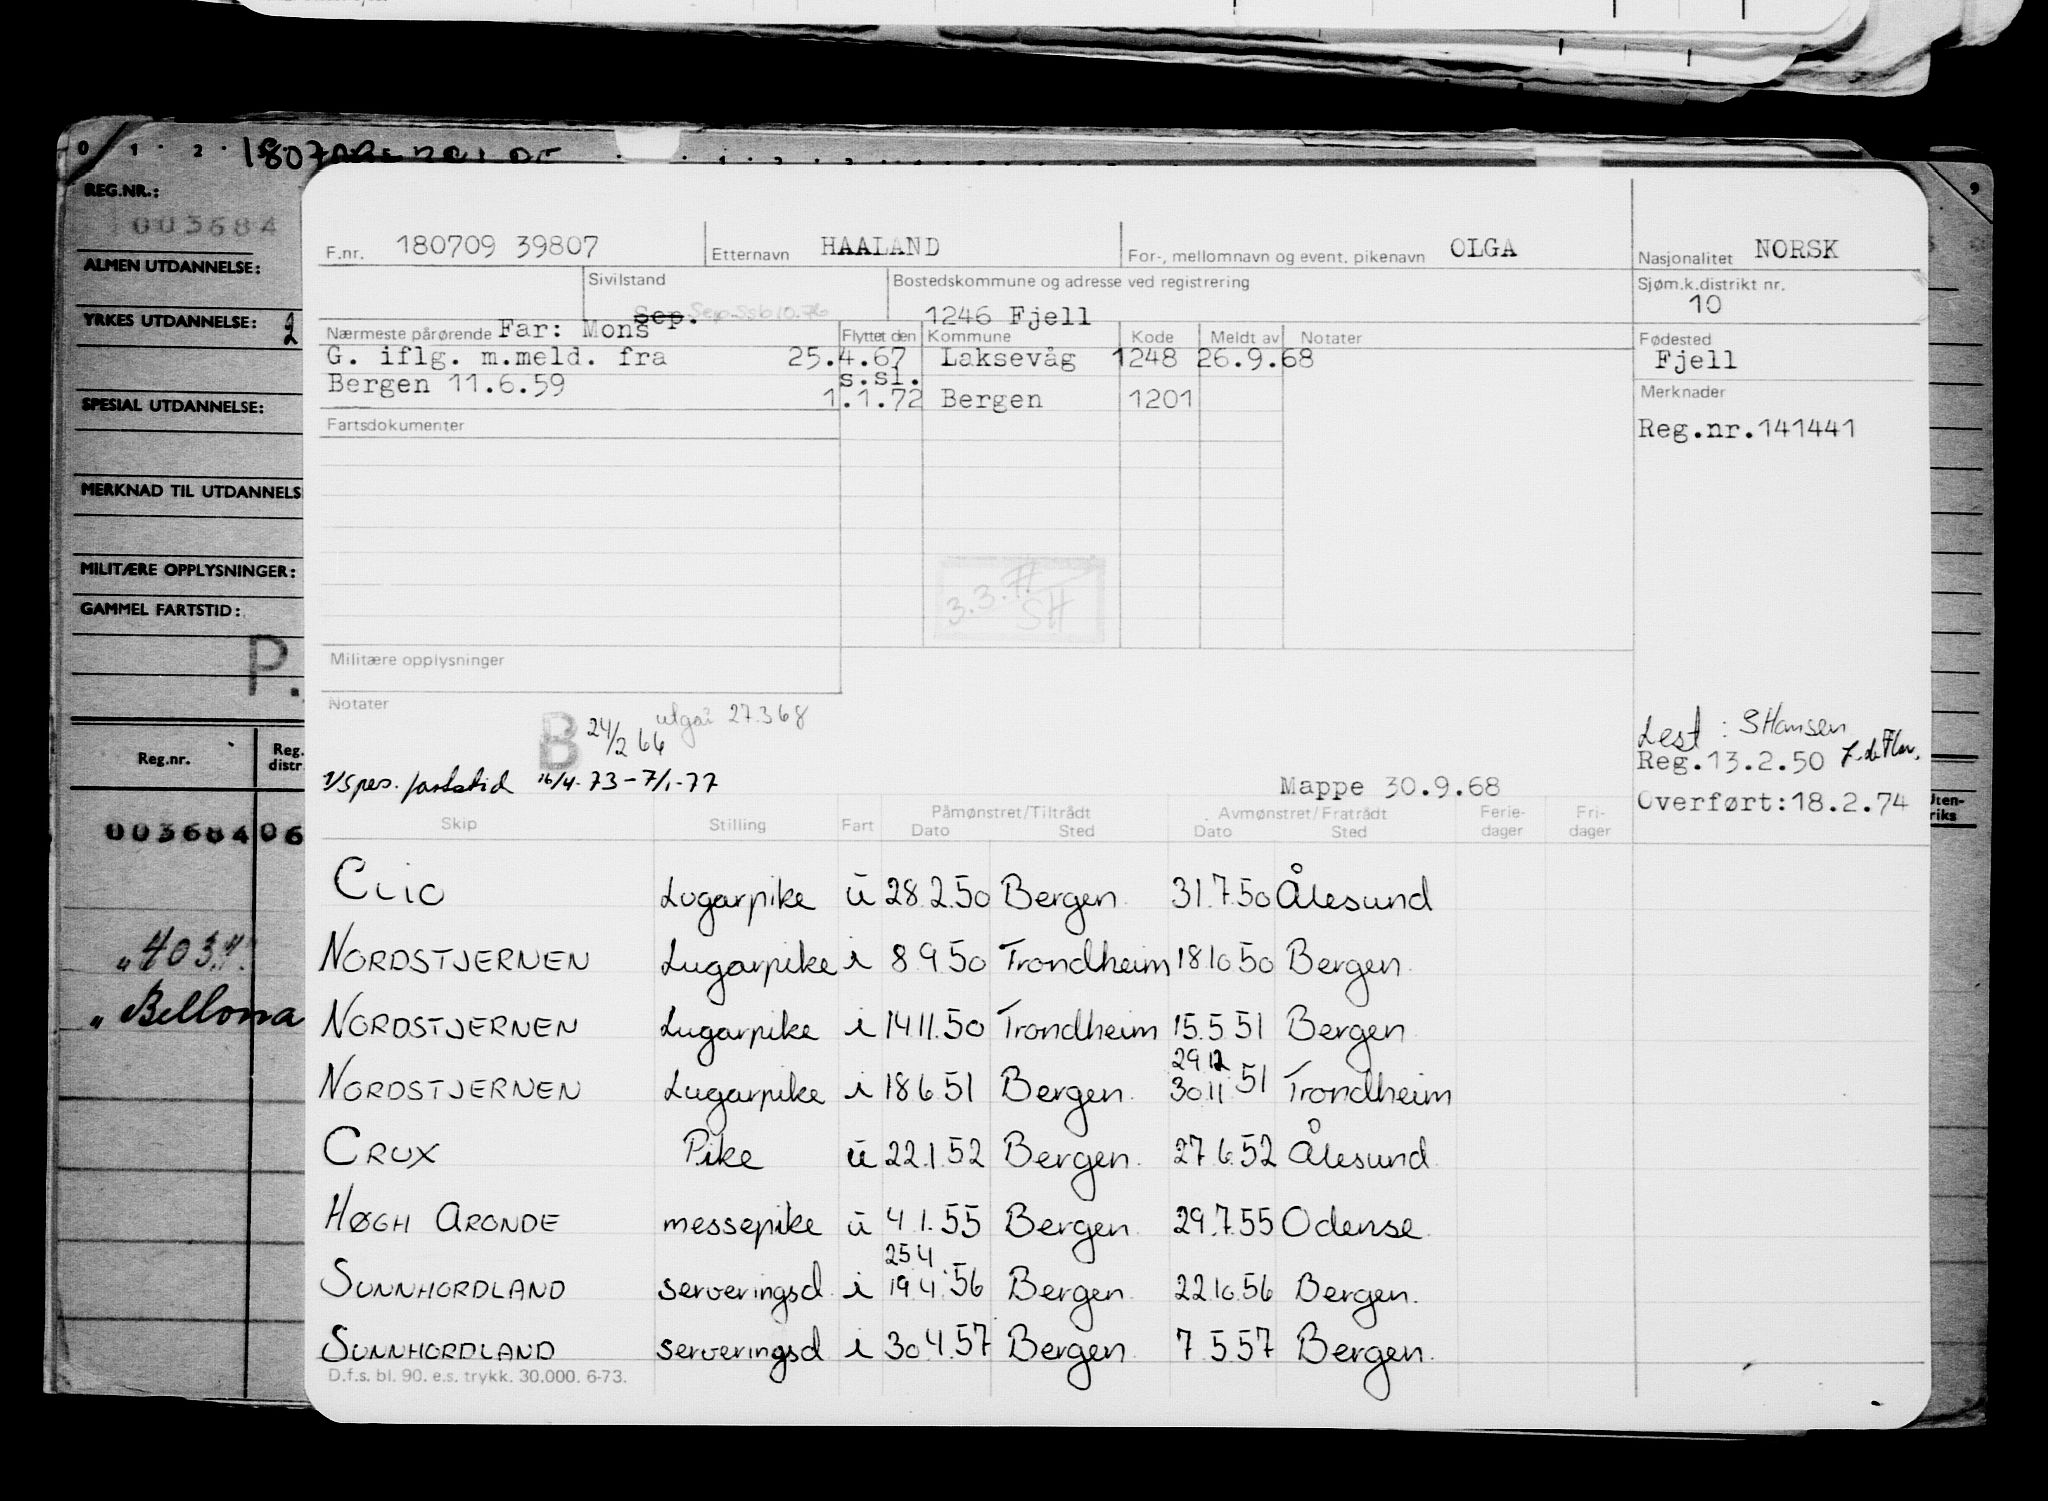 0 1 2
REG.NR.:
003684
ALMEN UTDANNELSE:
YRKES UTDANNELSE: 2
SPESIAL UTDANNELSE:
MERKNAD TIL UTDANNELS
MILITÆRE OPPLYSNINGER:
GAMMEL FARTSTID:
P.
Reg.nr. Reg. distr.
003684 06
"403."
" Bellona
9
Uten-
riks
F.nr. 180709 39807 Etternavn HAALAND For-, mellomnavn og event. pikenavn OLGA Nasjonalitet NORSK
Sivilstand Bostedskommune og adresse ved registrering Sjøm.k.distrikt nr.
Sep. Sep. Ssb 10.76 1246 Fjell 10
Nærmeste pårørende Far: Mons Flyttet den Kommune Kode Meldt av Notater Fødested
G. iflg. m.meld. fra 25.4.67 Laksevåg 1248 26.9.68 Fjell
Bergen 11.6.59 s.sl.
1.1.72 Bergen 1201 Merknader
Fartsdokumenter Reg.nr.141441
3.3.77
SH
Militære opplysninger
Notater
B 24/2 66 utgår 27.3 68 Lest: S Hansen
Reg.13.2.50
1/s pes. fartstid 16/4-73-7/1-77 Mappe 30.9.68
Overført:18.2.74
Skip Stilling Fart Påmønstret/Tiltrådt Avmønstret/Fratrådt Ferie- Fri-
Dato Sted Dato Sted dager dager
CLIO Lugarpike u 28.2.50 Bergen 31.7.50 Ålesund
NORDSTJERNEN Lugarpike i 8 9.50 Trondheim 18.10 50 Bergen
NORDSTJERNEN Lugarpike i 14.11.50 Trondheim 15.5 51 Bergen
29 12
NORDSTJERNEN Lugarpike i 18 6 51 Bergen 30 11 51 Trondheim
CRUX Pike u 22.1.52 Bergen 27.6.52 Ålesund
HØGH ARONDE messepike u 4.1.55 Bergen 29.7.55 Odense
25 4
SUNNHORDLAND serveringsd i 19.4.56 Bergen 22.10.56 Bergen.
SUNNHORDLAND serveringsd i 30 4.57 Bergen 7.5 57 Bergen.
D.f.s. bl. 90. e.s. trykk. 30.000. 6-73.